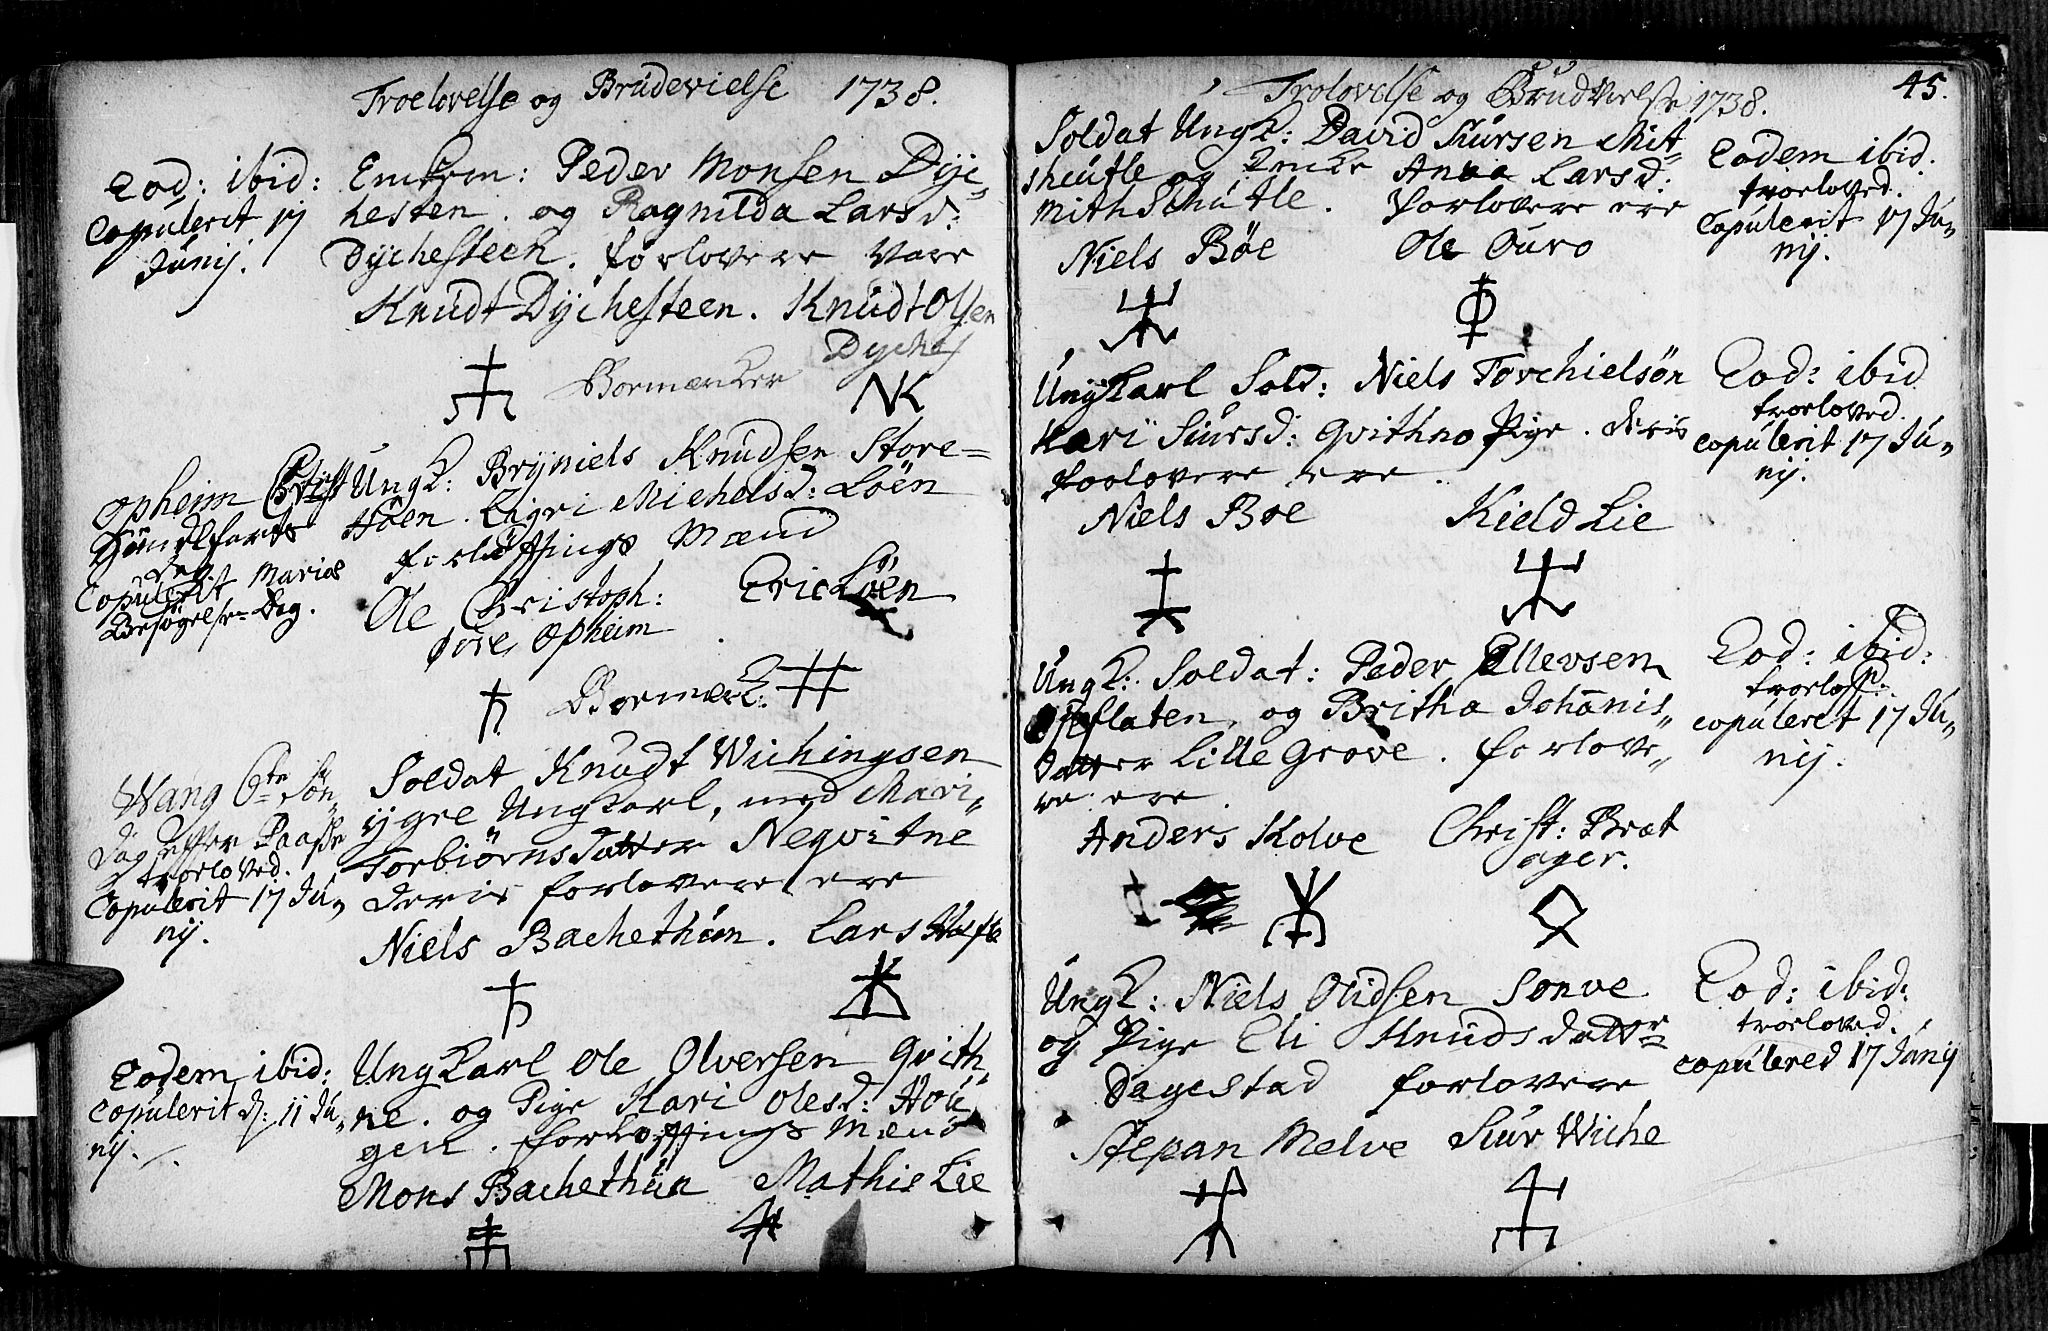 Troelovelse og Brudevielse 1738.
Eod: ibid:
Copulerit 17
Junij.
Enckem: Peder Monsen Dyc-
hesten. og Ragnilda Larsd:
Dychesteen. forlovere Vare
Knudt Dychesteen. Knudt Olsen
Dyches
Boemercker
NK
Opheim
Copulerit Mariæ
Besøgelse-Dag.
Ungk: Bryniels Knudsen Store-
Høen. Sigri Michelsd: Løen
forløffnings Mænd
Ole Christoph: Eric Løen
Opheim
Boemerk:
Wang 6te Søn-
dag efter Paasche
troeloved.
Copulerit 17 Ju-
nij.
Soldat Knudt Wichingsen
ygre Ungkarl, med Mari-
Torbiørnsdatter Neqvitne
deris forlovere ere
Niels Bachethun. Lars
Eodem ibid:
Copulerit d: 11 Ju-
nij.
Ungkarl Ole Olversen Qvith-
ne. og Pige Kari Olesd: Hou-
gen. forløffnings Mænd
Mons Bachethun Mathis Lie
45.
Trolovelse og Brudvielse 1738.
Soldat Ungk: David Siursen Mit-
shiutle og Encke Anna Larsd:
MithSchutle. Forlovere ere
Niels Bøe Ole Ouro
Eodem ibid.
troeloved.
Copulerit 17 Ju-
nij.
Ungkarl Sold: Niels Torchielsøn
Kari Siursd: Qvithno Pige. deris
forlovere ere.
Niels Boe Kield Lie
Eod: ibid
troeloved.
Copulerit 17 Ju-
nij.
Ungk: Soldat: Peder Ellevsen
Opflaten, og Britha Johanis-
datter Lille Grove. forlove-
re ere.
Anders Kolve Christ: Bræt
ager.
Eod: ibid:
troeloff:
copuleret 17 Ju-
nij.
Ungk: Niels Oudsen Sonve
og Pige Eli Knudsdatter
Dagestad forlovere
Stepan Melve Siur Wiche
Eod: ibid:
troeloved.
copulered 17 Junij